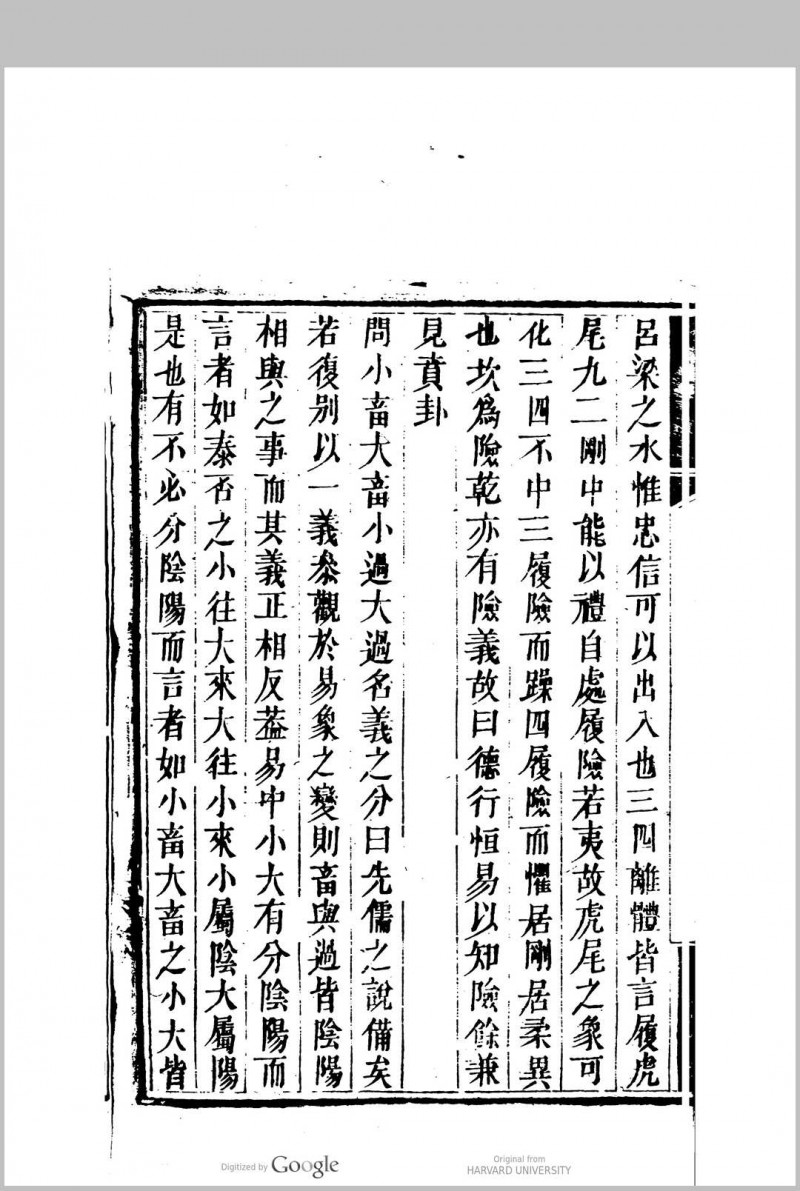 呂梁之水惟忠信可以出入也三四離體皆言履虎
尾九二剛中能以禮自處履險若夷故虎尾之象可
化三四不中三履險而躁四履險而懼居剛居柔異
也坎爲險乾亦有險義故曰德行恒易以知險餘兼
見賁卦
問小畜大畜小過大過名義之分曰先儒之說備矣
若復别以一義叅觀於易象之變則畜與過皆陰陽
相與之事而其義正相反葢易中小大有分陰陽而
言者如泰否之小往大來大往小來小屬陰大屬陽
是也有不必分陰陽而言者如小畜大畜之小大皆
Digitized by Google
Original from
HARVARD UNIVERSITY